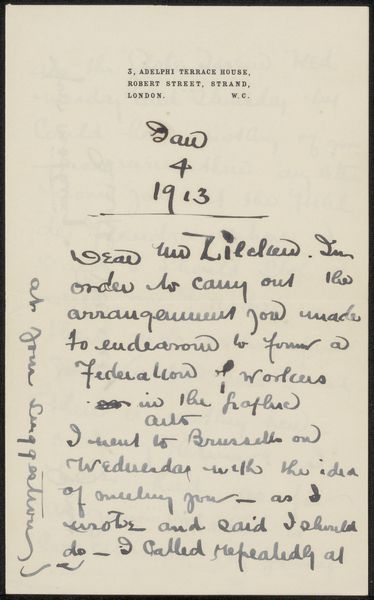 3, ADELPHI TERRACE HOUSE,
ROBERT STREET, STRAND,
LONDON. W.C.
Jan
4
1913
Dear Mr Zilcken. In
order to carry out the
arrangement you made
to endeavour to form a
Federation of Workers
in the Graphic
arts
I went to Brussels on
Wednesday with the idea
of meeting you — as I
wrote and said I should
do — I called repeatedly at
at your suggestion